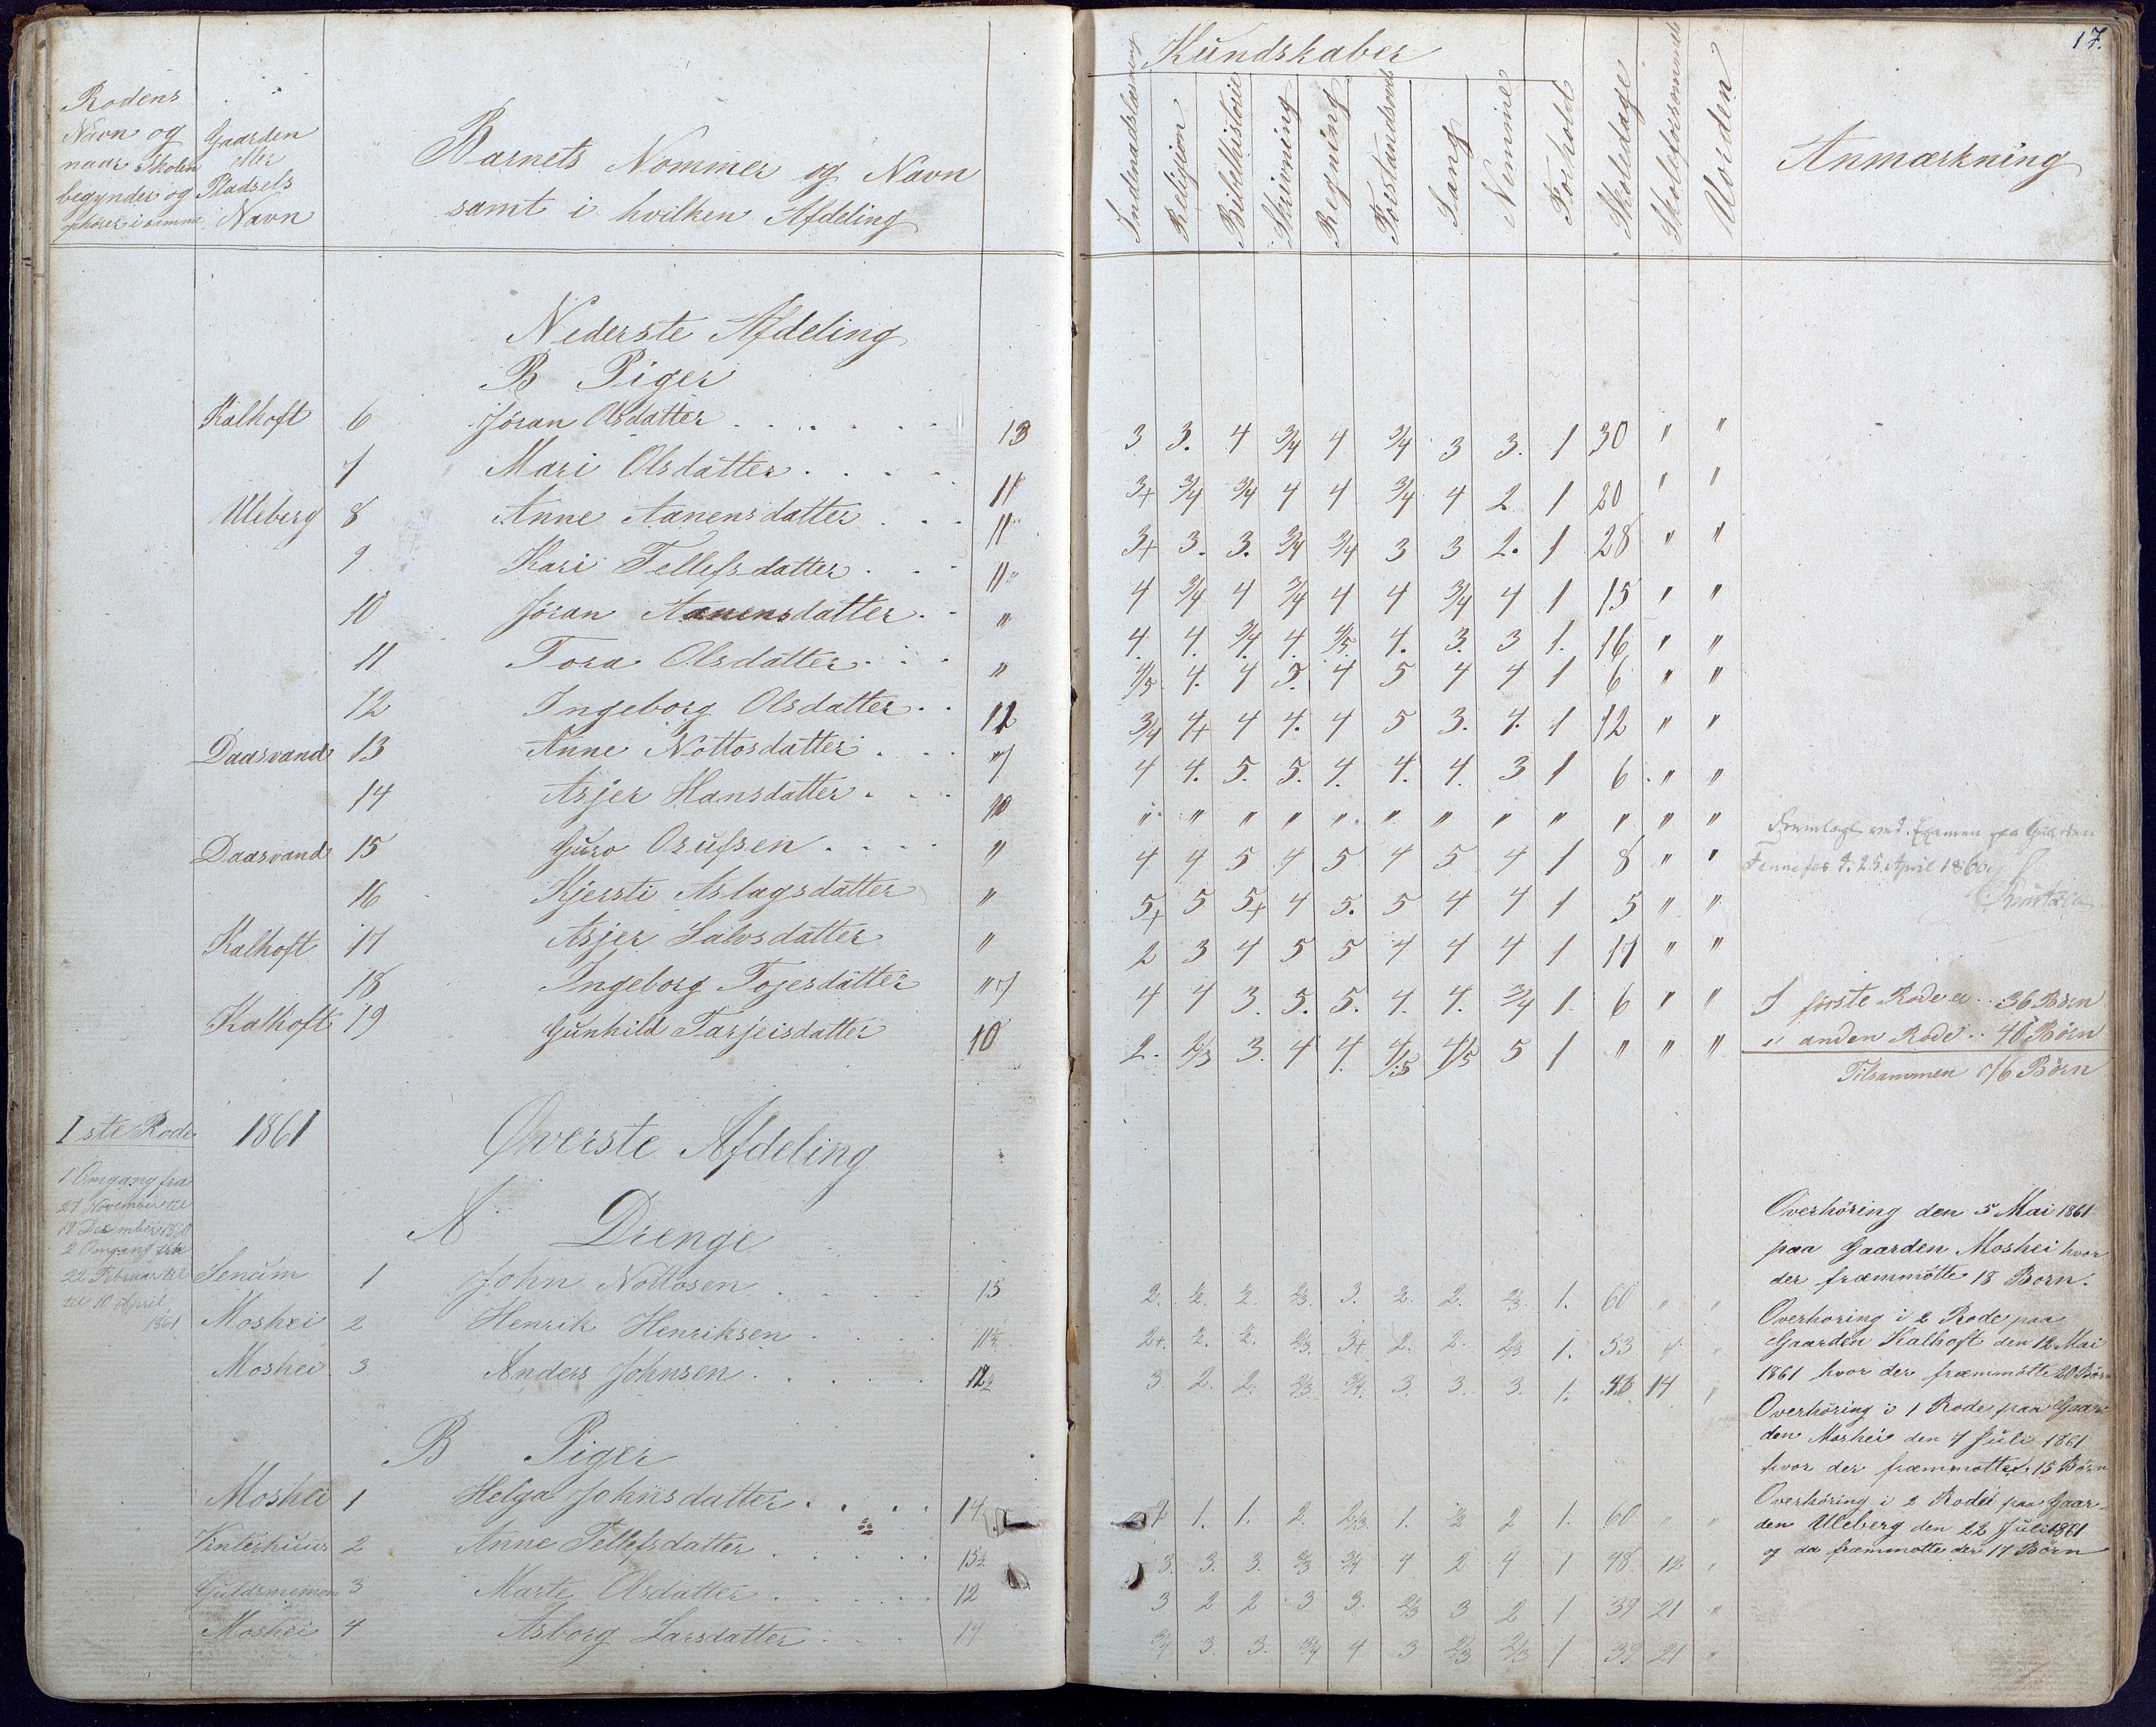 17.
Rodens
Navn og
naar Skolen
begynder og
ophører i samme
Gaarden
eller
Pladsels
Navn
Barnets Nommer og Navn
samt i hvilken Afdeling
Kundskaber
Indenadslæsning
Religion
Bibelhistorie
Skrivning
Regning
Forstandsøvels
Sang
Nemme
Forhold
Skoledage
Skoleforsømmels
Uorden
Anmærkning
Nederste Afdeling
B Piger
Kalhoft 6 Jöran Olsdatter 13 3 3. 4 3/4 4 3/4 3 3. 1 30 " "
7 Mari Olsdatter 11 3+ 3/4 3/4 4 4 3/4 4 2 1 20 " "
Uleberg 8 Anne Aanensdatter 11 3+ 3. 3. 3/4 3/4 3 3 2. 1 28 " "
9 Kari Tellefsdatter 11 4 3/4 4 3/4 4 4 3/4 4 1 15 " "
10 Jöran Aanensdatter " 4. 4. 3/4 4. 4/5. 4. 3. 3 1. 16 " "
11 Tora Olsdatter " 4/5 4. 4 5. 4 5 4 4 1 6 " "
12 Ingeborg Olsdatter 12 3/4 4+ 4 4. 4 5 3. 4. 1 12 " "
Daasvand 13 Anne Nottosdatter 4 4. 5. 5. 4. 4. 4. 3 1 6 " "
14 Asjer Hansdatter 10 " " " " " " " " " " " "
Daasvand 15 Guro Osufsen " 4 4 5 4 5 4 5 4 1 8 " "
16 Kjersti Aslagsdatter " 5+ 5 5+ 4 5. 5 4 4 1 5 " "
Kalhoft 17 Asjer Salvsdatter " 2 3 4 5 5 4 4 4 1 11 " "
18 Ingeborg Tojesdatter 4 4 3. 5. 5. 4. 4. 3/4 1 6 " "
Kalhoft 19 Gunhild Tarjeisdatter 10 2. 2/3 3. 4 4. 4/5 4/5 5 1 " " "
Fremlagt ved Examen paa Gaarden
d. 25 April 1860
I förste Rode er 36 Börn
i anden Rode 40 Börn
Tilsammen 76 Börn
1ste Rode 1861
1 Omgang fra
27 November til
19 December 1860
2 Omgang fra
22 Februar til
til 10 April
1861
Øverste Afdeling
A Drenge
Senum 1 John Nottosen 15 2. 2. 2. 2/3 3. 2. 2. 2/3. 1. 60 " "
Moshei 2 Henrik Henriksen 2+. 2. 2. 2/3. 3+ 2. 2. 2/3 1. 53 7 "
Moshei 3 Anders Johnsen 12 3. 2. 2. 2/3. 3/4. 3. 3. 3. 1. 46 14 "
B Piger
Moshei 1 Helga Johnsdatter 14 2 1. 1. 2. 2/3. 1. 2 1. 60 " "
Vinterhuus 2 Anne Tellefsdatter 13 3. 3. 3. 2/3 3/4 4 2 4 1 48 12 "
3 Marte Olsdatter 12 3 2 2 3 3. 2/3 3 2 1 39 21 "
Moshei 4 Asborg Larsdatter 14 3/4 3. 3. 3/4 4 3 2/3 2/3 1 39 21 "
Overhöring den 5 Mai 1861
paa Gaarden Moshei hvor
der fræmmötte 18 Born.
Overhoring i 2 Rode paa
Gaarden Kalhoft den 12 Mai
1861 hvor der fræmmötte 20 Börn
Overhöring i 1 Rode paa Gaar-
den Moshei den 7 Juli 1861
hvor der fræmmötte 15 Börn
Overhöring i 2 Rode paa Gaar-
den Uleberg den 22 Juli 1861
og da fræmmotte der 17 Börn